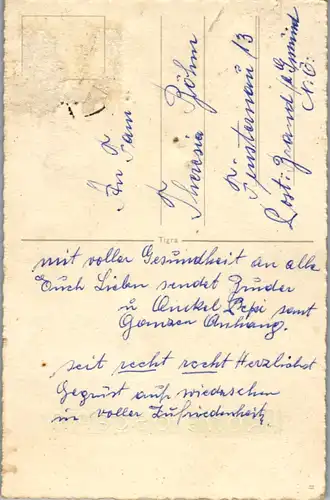 An Fam.
Theresia Böhm
Finsternau 13
Post: Brand b/Gmünd
N. Ö.
Tigra
mit voller Gesundheit an alle
Euch Lieben sendet
u Onckel Pepi samt
Ganzen Anhang.
seit recht recht Herzlichst
Gegrüst auf wiedersehen
in voller Zufriedenheit